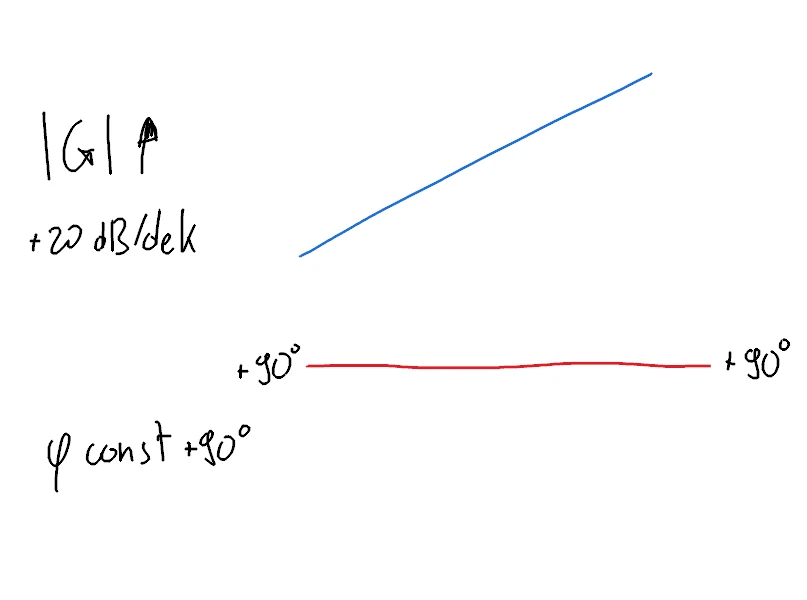 |G| ↑
+20 dB/dek
+90°
+90°
φ const +90°